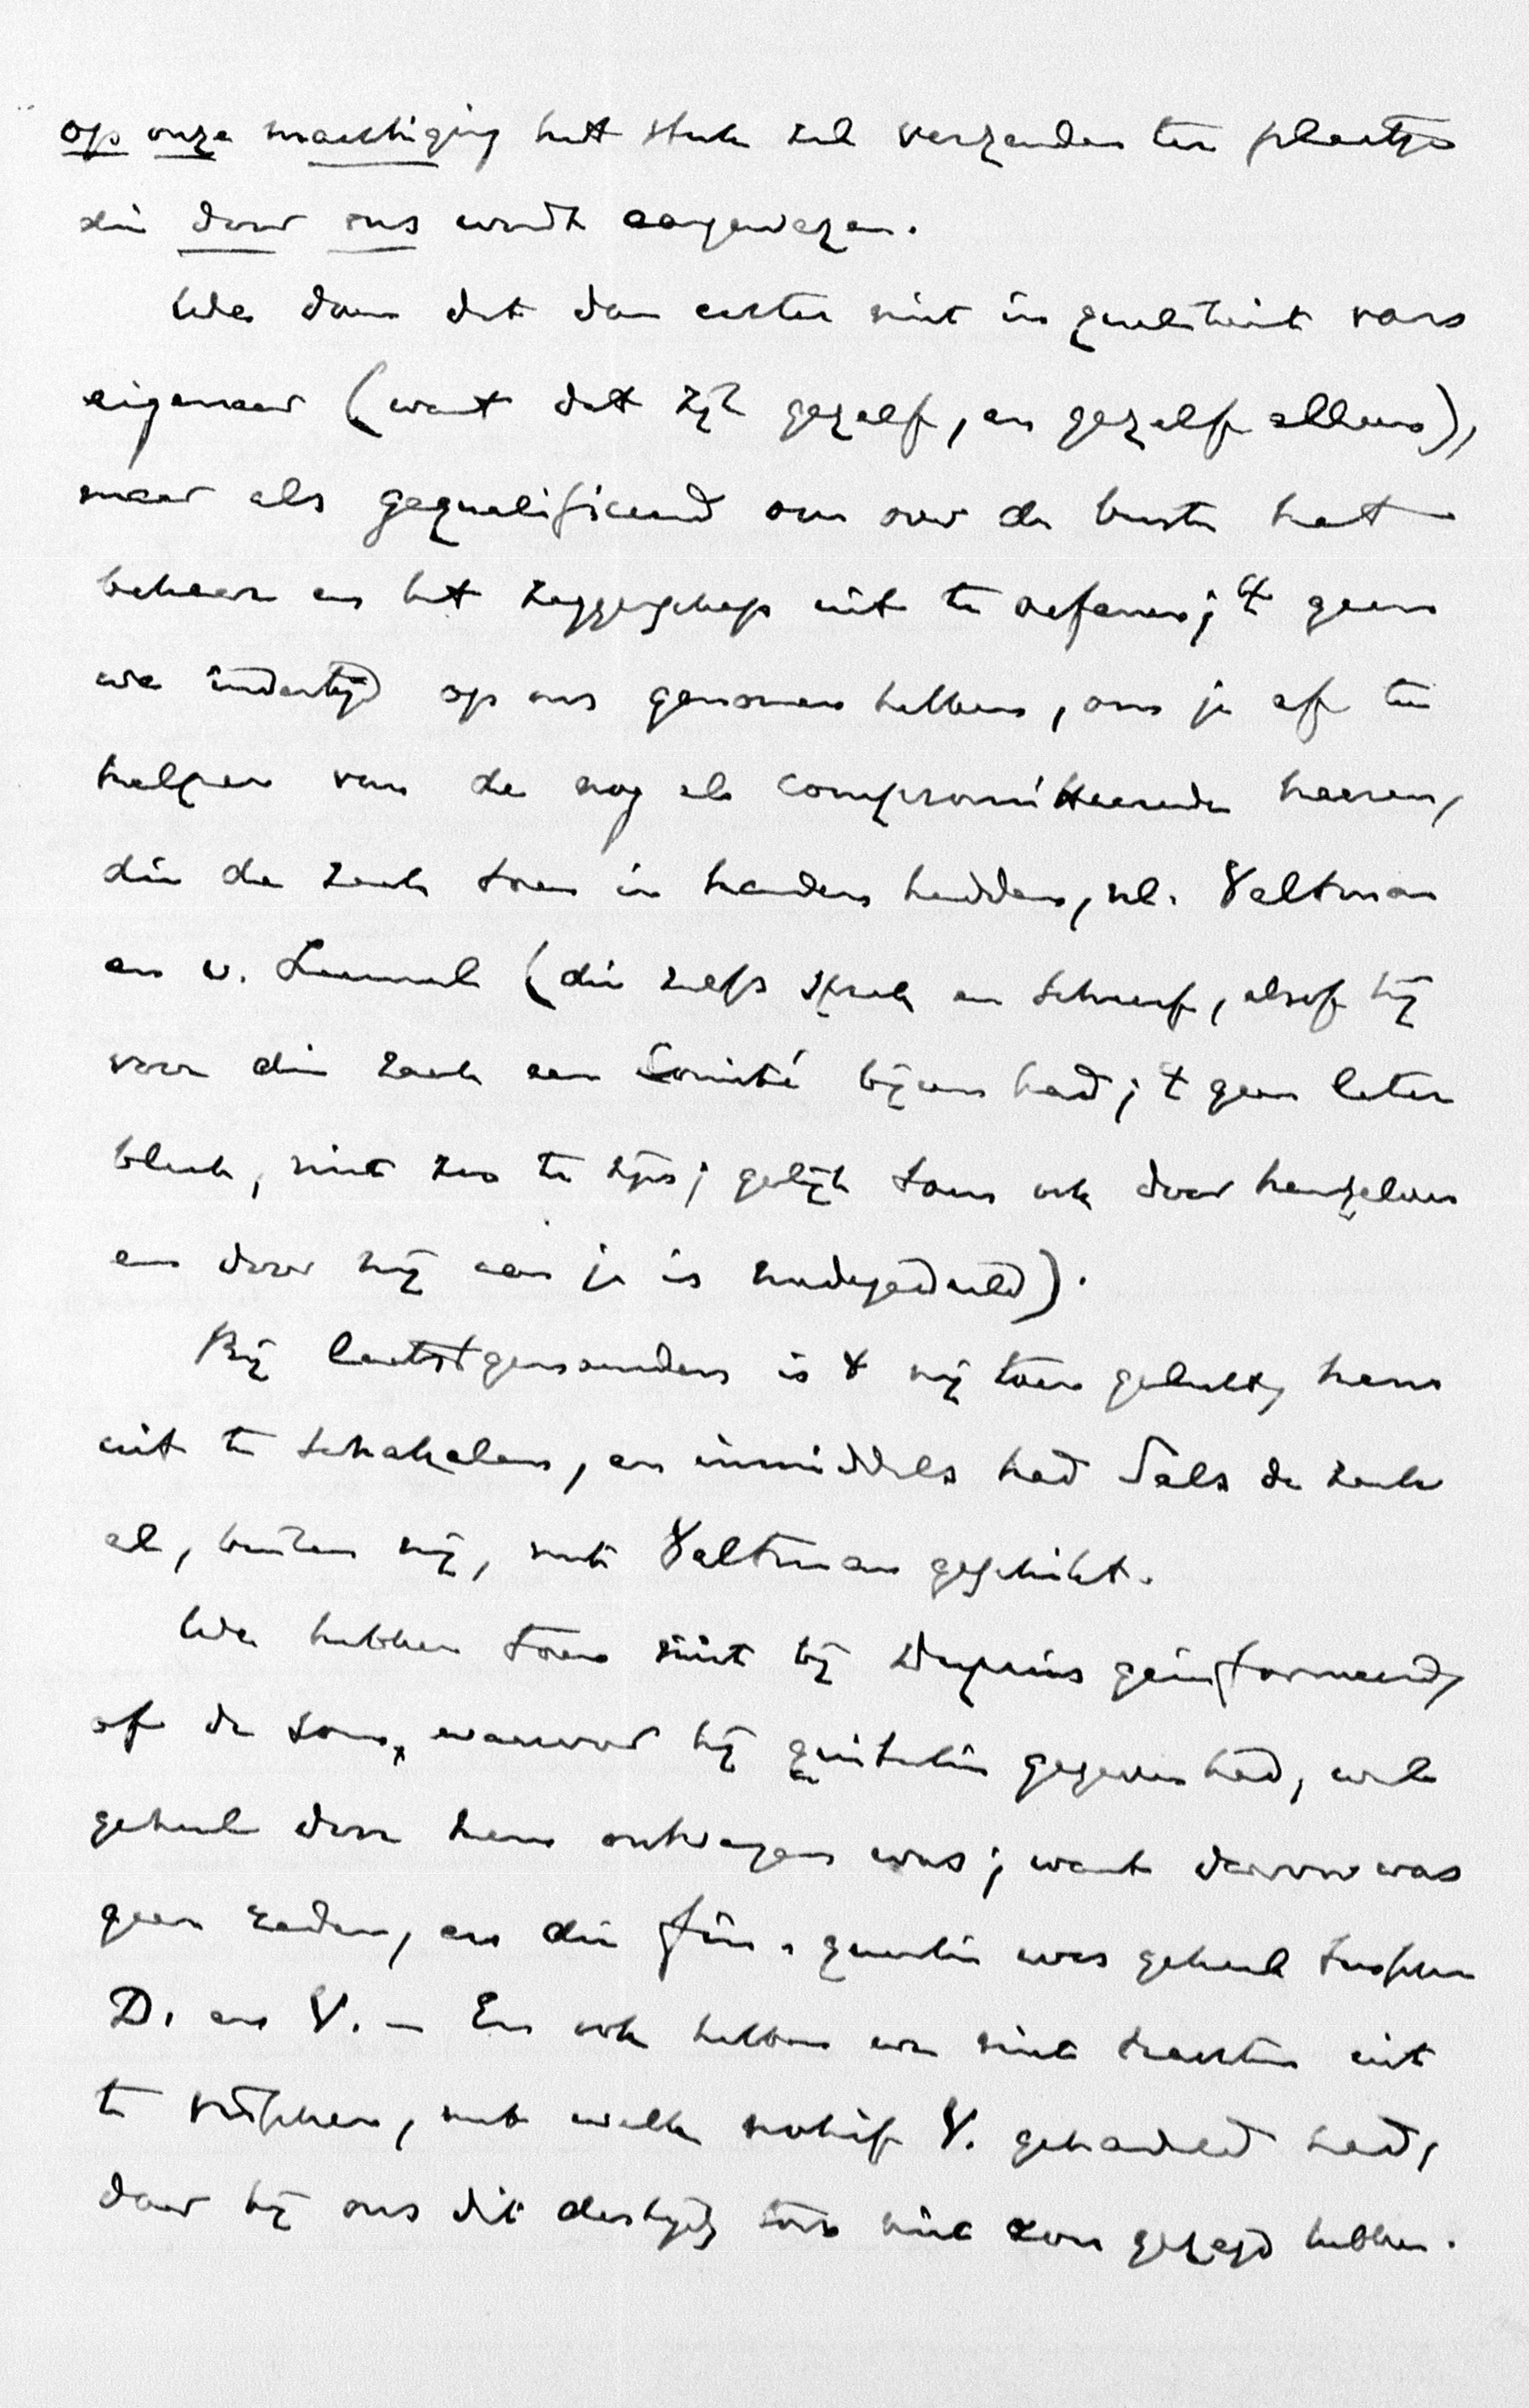 op onze machtiging het stuk zal verzenden ter plaatse
die door ons wordt aangewezen.
We doen dat dan echter niet in qualiteit van
eigenaar (want dat zijt gezelf, en gezelf alleen),
maar als gequalificeerd om over de buste het
beheer en het zeggenschap uit te oefenen; 't geen
we indertijd op ons genomen hebben, om je af te
helpen van de nog al compromitteerende heeren,
die de zaak toen in handen hadden, nl. Veltman
en v. Lummel (die zelfs sprak en schreef, alsof hij
voor die zaak een Comité bijeen had; 't geen later
bleek, niet zoo te zijn; gelijk toen ook door hemzelven
en door mij aan je is medegedeeld).
Bij laatstgenoemden is 't mij toen gelukt, hem
uit te schakelen, en inmiddels had Sals de zaak
al, buiten mij, met Veltman geschikt.
We hebben toen niet bij Dupuis geïnformeerd,
of de som, waarvoor hij quitantie gegeven had, wel
geheel door hem ontvangen was; want daarvoor was
geen reden, en die fin. quaestie was geheel tusschen
D. en V. — En ook hebben we niet trachten uit
te visschen, met welk motief V. gehandeld had,
daar hij ons dit destijds toch niet zou gezegd hebben.